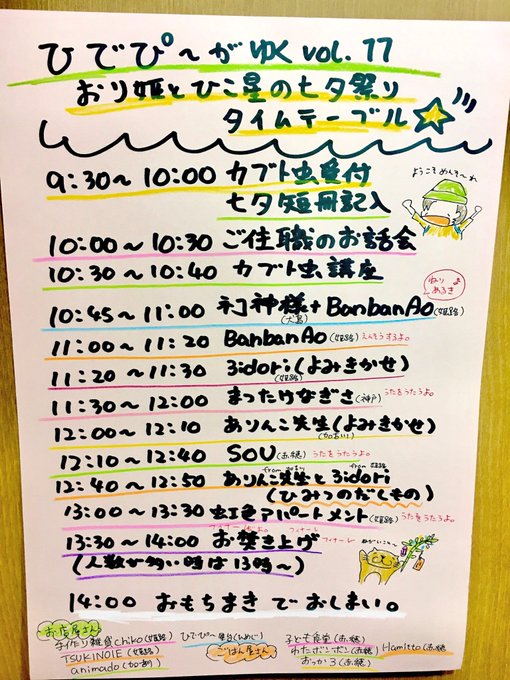 ひでぴ〜がゆく vol.17
おり姫とひこ星の七夕祭り
タイムテーブル
9:30〜10:00 カブト虫受付
七夕短冊記入
ようこそめんそ〜れ
10:00〜10:30 ご住職のお話会
10:30〜10:40 カブト虫講座
10:45〜11:00 ネコ神様+BanbanAo(姫路)
11:00〜11:20 BanbanAo(姫路) えんそうするよ。
11:20〜11:30 3idori(よみきかせ)
(姫路)
11:30〜12:00 まったけなぎさ(神戸) うたをうたうよ。
12:00〜12:10 ありんこ先生(よみきかせ)
12:10〜12:40 SOU(赤穂) うたをうたうよ。
12:40〜12:50 ありんこ先生と3idori
(ひみつのだしもの)
13:00〜13:30 虹色アパートメント(姫路) うたをうたうよ。
13:30〜14:00 お焚き上げ フィナーレ
(人数が多い時は13時〜)
14:00 おもちまきでおしまい。
お店屋さん
手作り雑貨chiko(姫路)
TSUKINOIE(姫路)
animado(加西)
ごはん屋さん
子ども食堂(赤穂)
わたポンポン(赤穂)
おっかろ(赤穂)
Hamitto(赤穂)